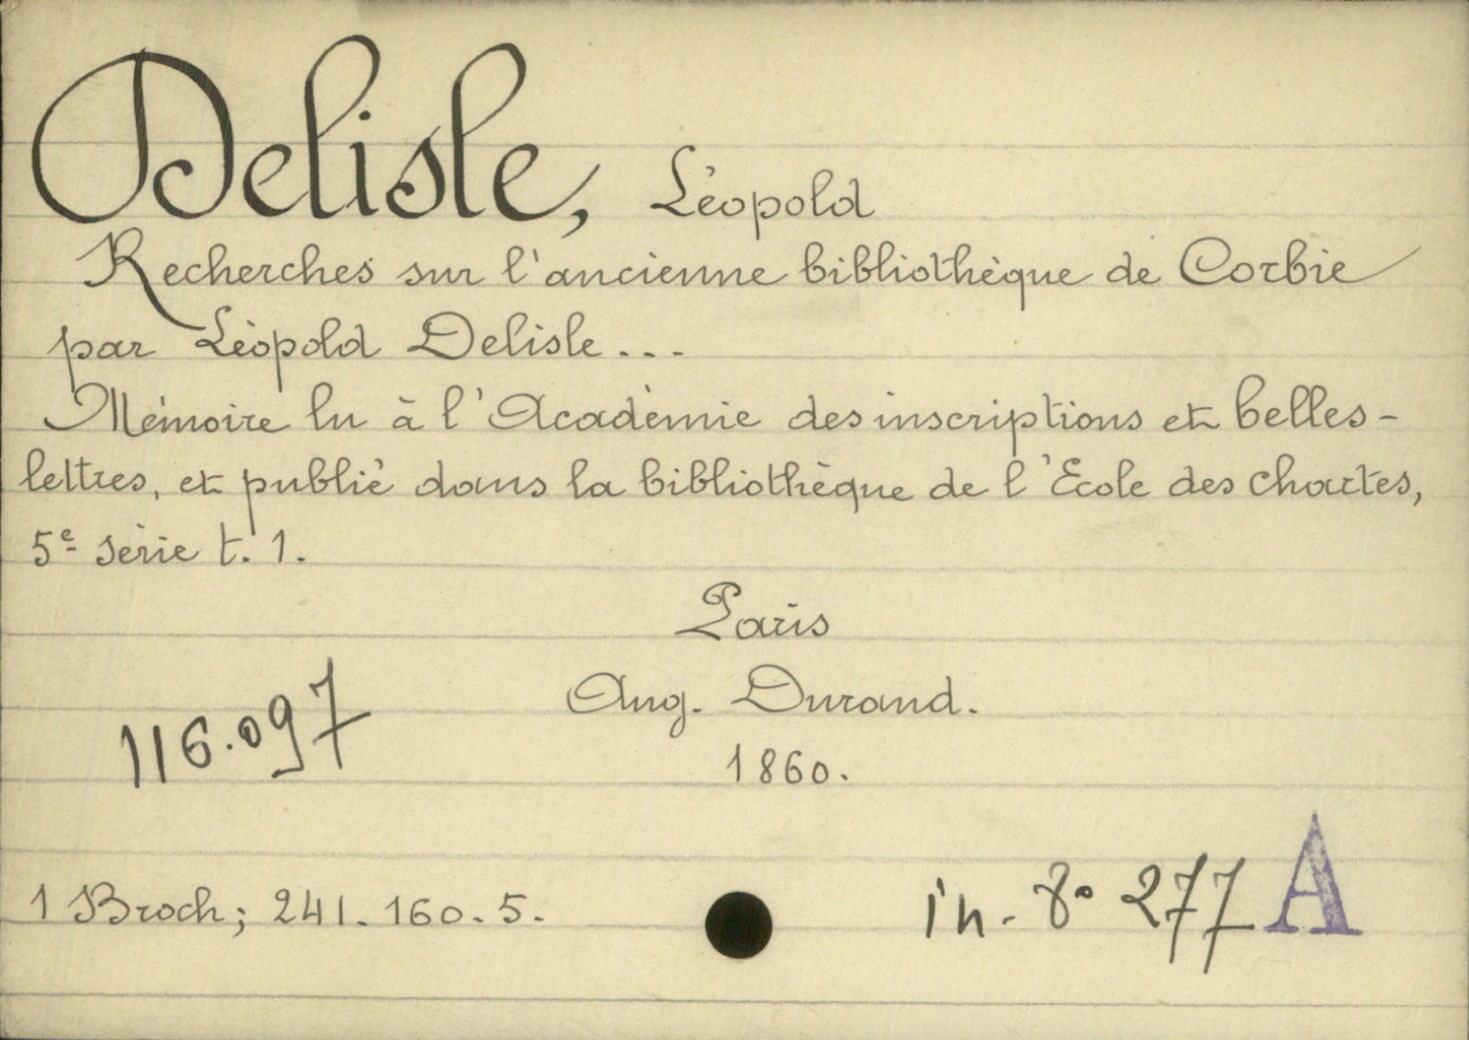 Delisle, Léopold
Recherches sur l'ancienne bibliothèque de Corbie
par Léopold Delisle...
Mémoire lu à l'Académie des inscriptions et belles-
lettres, et publié dans la bibliothèque de l'Ecole des chartes,
5e série t. 1.
Paris
Aug. Durand.
1860.
116.097
1 Broch; 241. 160. 5.
in-8° 277 A